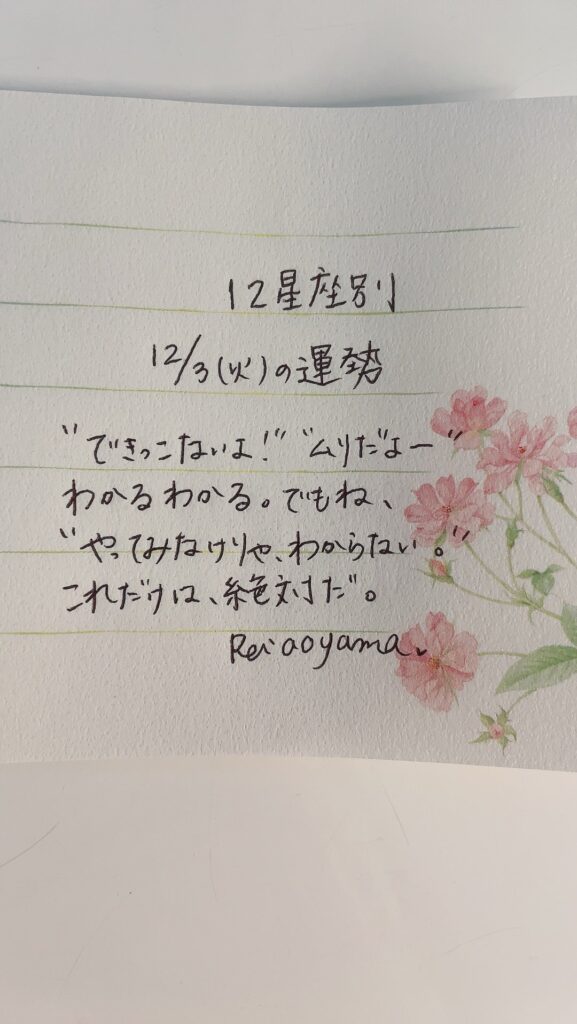 12星座別
12/3(火)の運勢
"できっこないよ!" "ムリだよー"
わかるわかる。でもね、
"やってみなけりゃ、わからない。"
これだけは、絶対だ。
Rei aoyama.